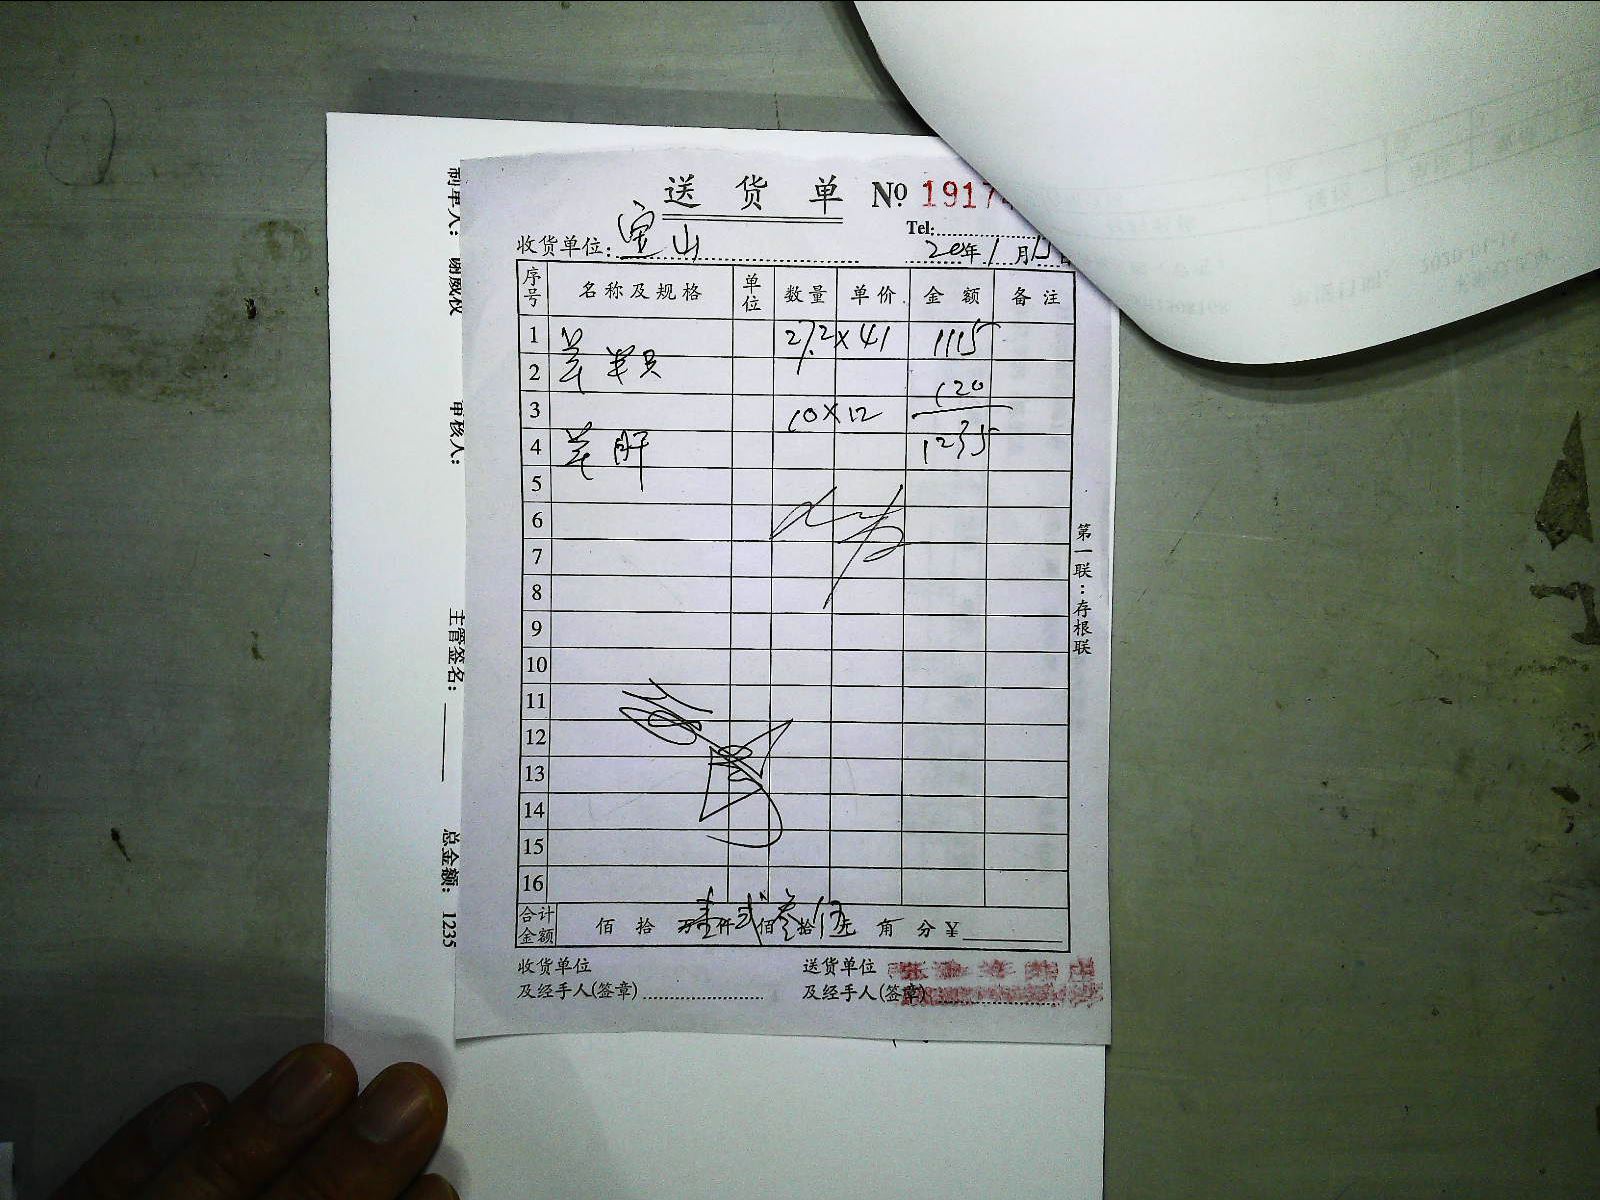 送货单 № 1917
Tel:
收货单位: 宝山 20年1月15日
序号 名称及规格 单位 数量 单价 金额 备注
1 27.2×41 1115
2 羊
3 10×12 120
4 羊肝 1235
5
6
7
8
9
10
11
12
13
14
15
16
合计金额 佰 拾 万壹仟贰佰叁拾伍元 角 分 ¥
收货单位
及经手人(签章)
送货单位
及经手人(签章)
第一联:存根联
制单人: 谢威权
审核人:
主管签名:
总金额: 1235